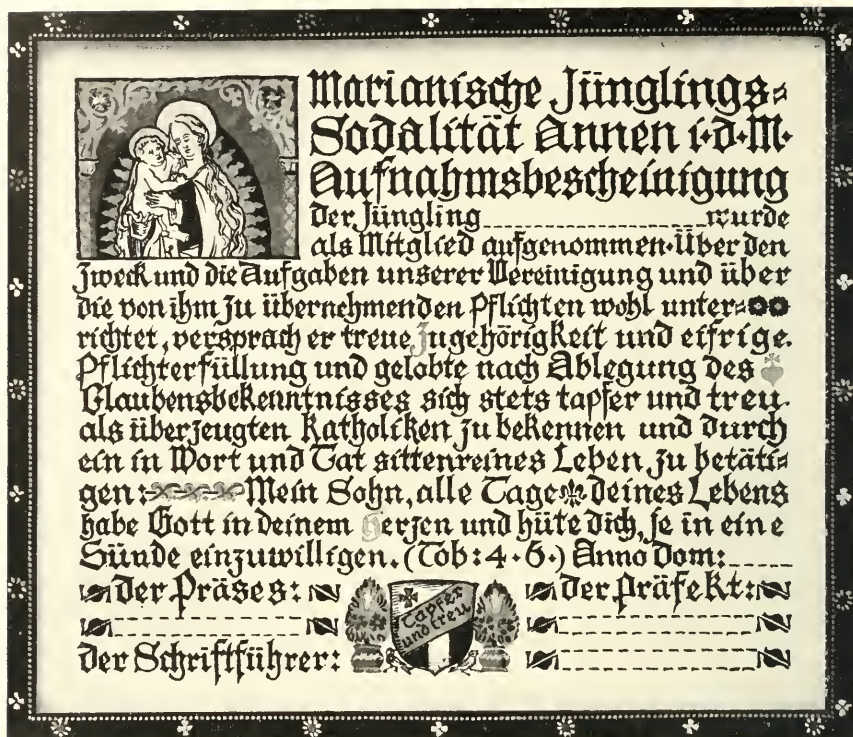 Marianische Jünglings=
Sodalität Annen i·d·M·
Aufnahmsbescheinigung
Der Jüngling wurde
als Mitglied aufgenommen·Über den
Zweck und die Aufgaben unserer Vereinigung und über
die von ihm zu übernehmenden Pflichten wohl unter=
richtet, versprach er treue Zugehörigkeit und eifrige
Pflichterfüllung und gelobte nach Ablegung des
Glaubensbekenntnisses sich stets tapfer und treu
als überzeugten Katholiken zu bekennen und durch
ein in Wort und Tat sittenreines Leben zu betäti=
gen: Mein Sohn, alle Tage deines Lebens
habe Gott in deinem Herzen und hüte dich, je in eine
Sünde einzuwilligen. (Tob: 4·6·) Anno Dom:
Der Präses: Der Präfekt:
Tapfer
und treu
Der Schriftführer: